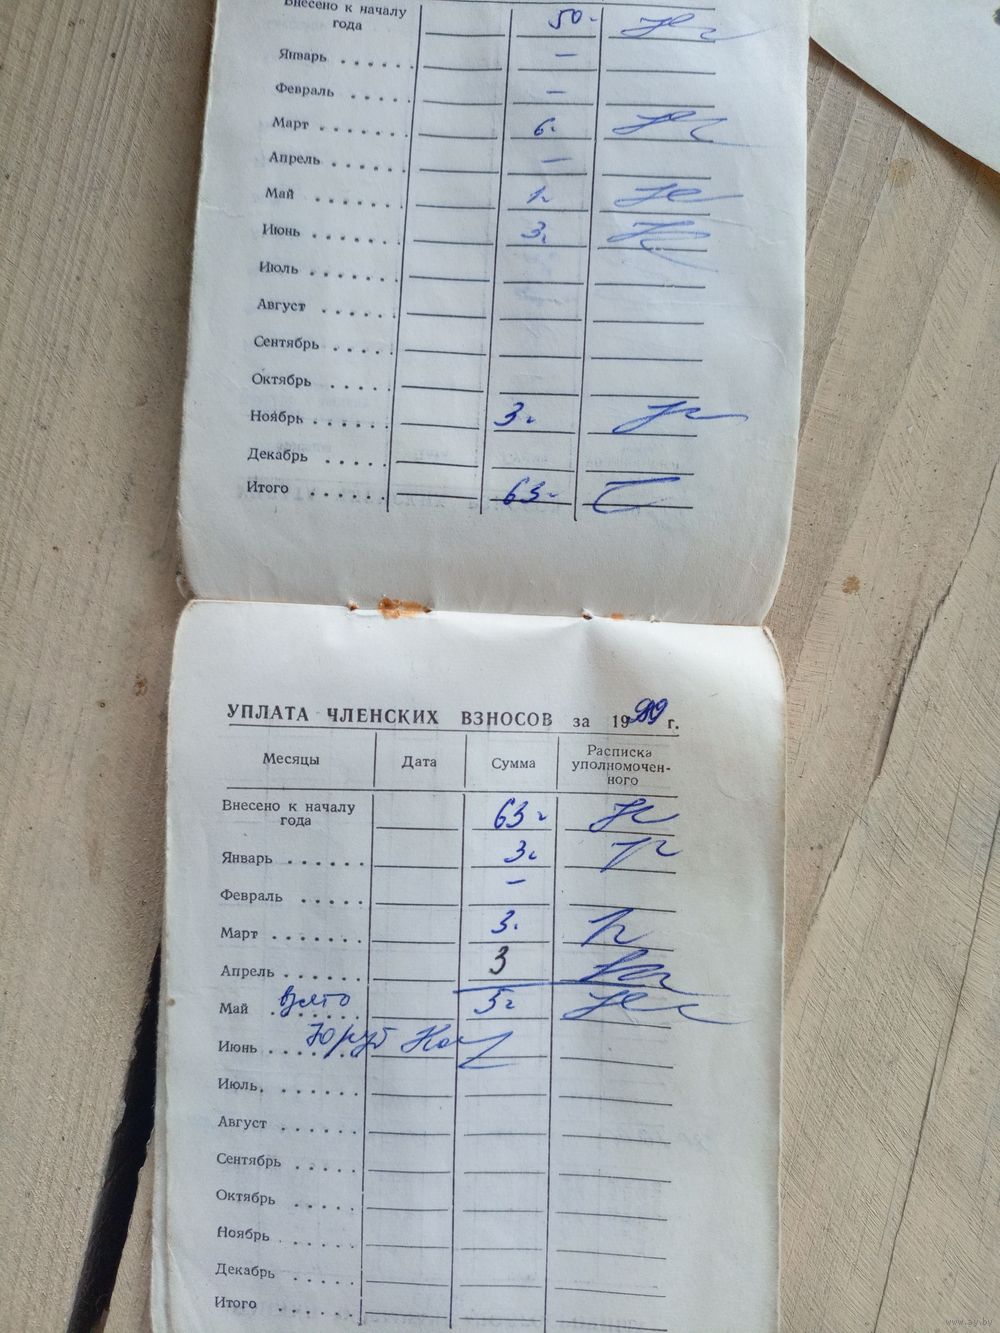 Внесено к началу года 50-
Январь . . . . . –
Февраль . . . . . –
Март . . . . . . . 6-
Апрель . . . . . . –
Май . . . . . . . 1-
Июнь . . . . . . . 3-
Июль . . . . . . .
Август . . . . . .
Сентябрь . . . . .
Октябрь . . . . .
Ноябрь . . . . . . 3-
Декабрь . . . . .
Итого . . . . . . 63-
УПЛАТА ЧЛЕНСКИХ ВЗНОСОВ за 19 г.
Месяцы Дата Сумма Расписка уполномочен-ного
Внесено к началу года 63-
Январь . . . . . . 3-
Февраль . . . . . –
Март . . . . . . . 3-
Апрель . . . . . . 3
Май . . . . . . . взято 5-
Июнь . . . . . . . руб
Июль . . . . . . .
Август . . . . . .
Сентябрь . . . . .
Октябрь . . . . .
Ноябрь . . . . . .
Декабрь . . . . .
Итого . . . . . .
www.ay.by